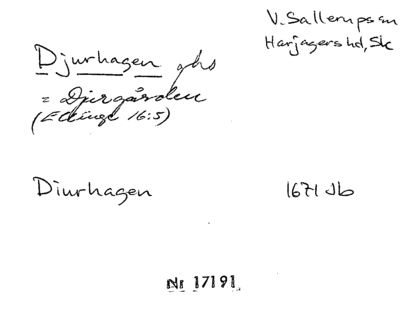 V. Sallerup sn
Harjagers hd, Sk
Djurhagen ghs
= Djurgården
(Ellinge 16:5)
Diurhagen 1671 Jb
Nr 17191.